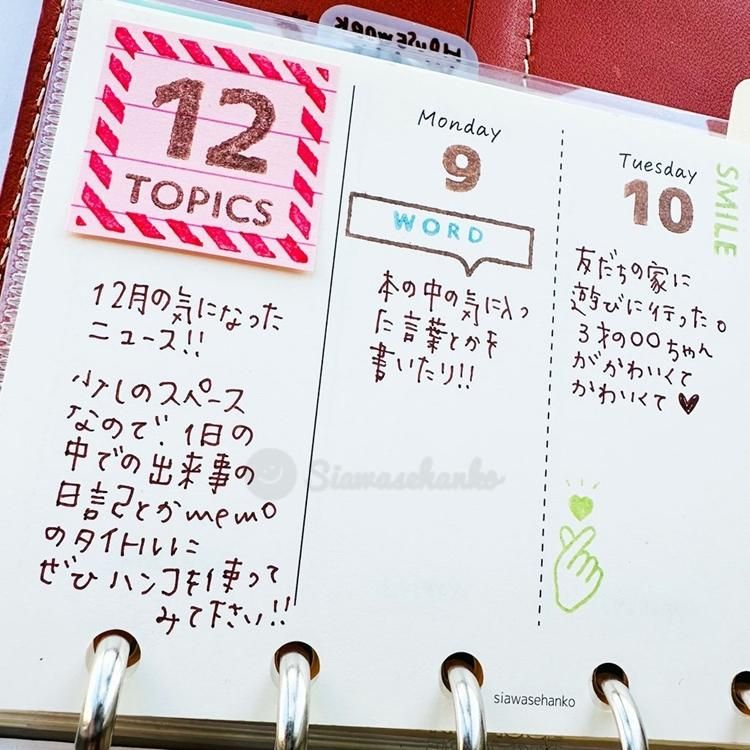 Housework
12
TOPICS
12月の気になった
ニュース!!
少しのスペース
なので、1日の
中での出来事の
日記とかmemo
のタイトルに
ぜひハンコを使って
みて下さい!!
Monday
9
WORD
本の中の気に入っ
た言葉とかを
書いたり!!
Tuesday
10
SMILE
友だちの家に
遊びに行った。
3才の〇〇ちゃん
がかわいくて
かわいくて♥
Siawasehanko
siawasehanko